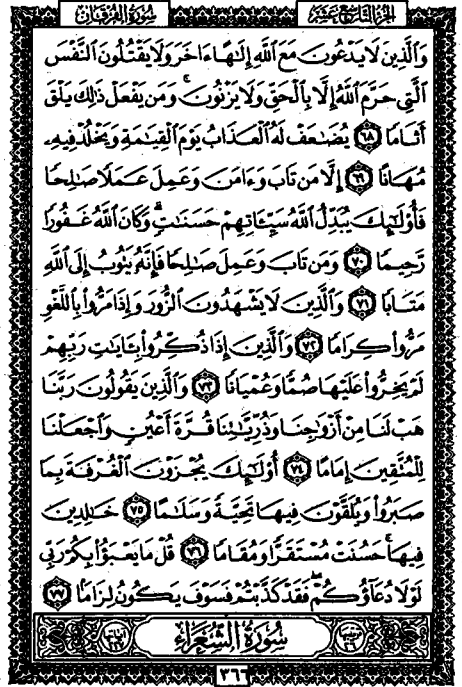 سُورَةُ الفُرْقَانِ
الجزء التاسع عشر
وَٱلَّذِينَ لَا يَدْعُونَ مَعَ ٱللَّهِ إِلَٰهًا ءَاخَرَ وَلَا يَقْتُلُونَ ٱلنَّفْسَ
ٱلَّتِي حَرَّمَ ٱللَّهُ إِلَّا بِٱلْحَقِّ وَلَا يَزْنُونَ ۚ وَمَن يَفْعَلْ ذَٰلِكَ يَلْقَ
أَثَامًا ٦٨ يُضَٰعَفْ لَهُ ٱلْعَذَابُ يَوْمَ ٱلْقِيَٰمَةِ وَيَخْلُدْ فِيهِۦ
مُهَانًا ٦٩ إِلَّا مَن تَابَ وَءَامَنَ وَعَمِلَ عَمَلًا صَٰلِحًا
فَأُوْلَٰٓئِكَ يُبَدِّلُ ٱللَّهُ سَيِّـَٔاتِهِمْ حَسَنَٰتٍ ۗ وَكَانَ ٱللَّهُ غَفُورًا
رَّحِيمًا ٧٠ وَمَن تَابَ وَعَمِلَ صَٰلِحًا فَإِنَّهُۥ يَتُوبُ إِلَى ٱللَّهِ
مَتَابًا ٧١ وَٱلَّذِينَ لَا يَشْهَدُونَ ٱلزُّورَ وَإِذَا مَرُّوا۟ بِٱللَّغْوِ
مَرُّوا۟ كِرَامًا ٧٢ وَٱلَّذِينَ إِذَا ذُكِّرُوا۟ بِـَٔايَٰتِ رَبِّهِمْ
لَمْ يَخِرُّوا۟ عَلَيْهَا صُمًّا وَعُمْيَانًا ٧٣ وَٱلَّذِينَ يَقُولُونَ رَبَّنَا
هَبْ لَنَا مِنْ أَزْوَٰجِنَا وَذُرِّيَّٰتِنَا قُرَّةَ أَعْيُنٍ وَٱجْعَلْنَا
لِلْمُتَّقِينَ إِمَامًا ٧٤ أُوْلَٰٓئِكَ يُجْزَوْنَ ٱلْغُرْفَةَ بِمَا
صَبَرُوا۟ وَيُلَقَّوْنَ فِيهَا تَحِيَّةً وَسَلَٰمًا ٧٥ خَٰلِدِينَ
فِيهَا ۚ حَسُنَتْ مُسْتَقَرًّا وَمُقَامًا ٧٦ قُلْ مَا يَعْبَؤُا۟ بِكُمْ رَبِّي
لَوْلَا دُعَآؤُكُمْ ۖ فَقَدْ كَذَّبْتُمْ فَسَوْفَ يَكُونُ لِزَامًا ٧٧
سُورَةُ الشُّعَرَاءِ
٣٦٦